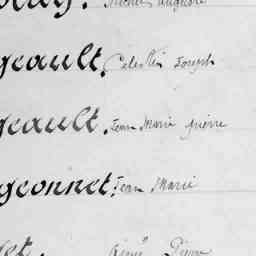 Michel Auguste
geault, Célestin Joseph
geault. Jean Marie Pierre
geonnet, Jean Marie
Aimé Pierre